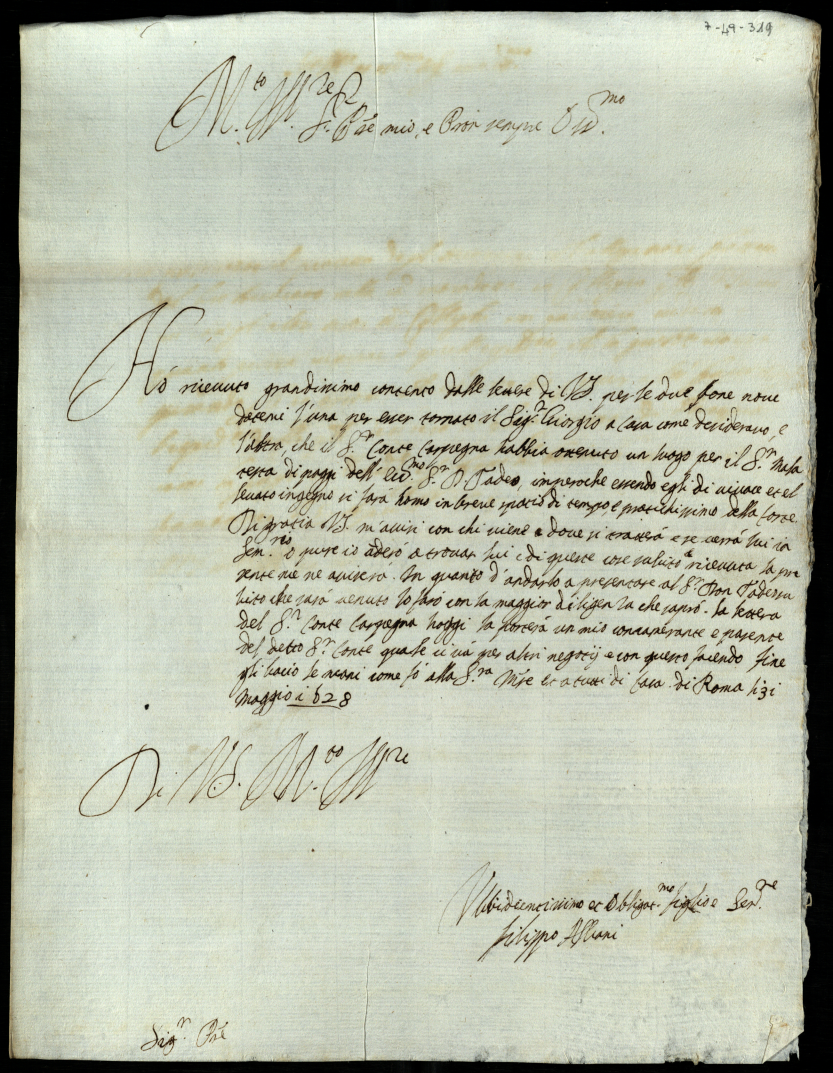 7-49-319
M.to Ill.re S.r P're mio, e Pron sempre Oss.mo
Hó riceuuto grandissimo contento dalle lettere di V.S. per le due bone noue
detemi l'una per esser tornato il Sig.r Giorgio a Casa come desiderauo, e
l'altra, che il S.r Conte Carpegna habbia ottenuto un luogo per il S.r Mala
testa di paggi dell' Ecc.mo S.r D. Tadeo, imperoche essendo egli di uiuace et el
leuato ingegno si fará homo in breue spatio di tempo, e pratichissimo della Corte.
Di gratia V.S. m'auisi con chi viene e doue si trattera e se verrá lui in
o pure io anderó a trouar lui e di queste cose subito riceuuta la pre
sente me ne auiserá. In quanto d'andarlo a presentare al S.r Don Tadeo su
bito che sará uenuto lo faró con la maggior diligenza che sapró. La lettera
del S.r Conte Carpegna hoggi la porterá un mio concamerante e parente
del detto S.r Conte quale ui uá per altri negotij e con questo facendo fine
gli bacio le mani come fó alla S.ra M're et a tutti di Casa. di Roma li 31
Maggio i628
Di V.S. M.to Ill.re
Ubidientissimo et Obligat.mo figlio e Ser.re
Filippo Albani
Sig.r P're